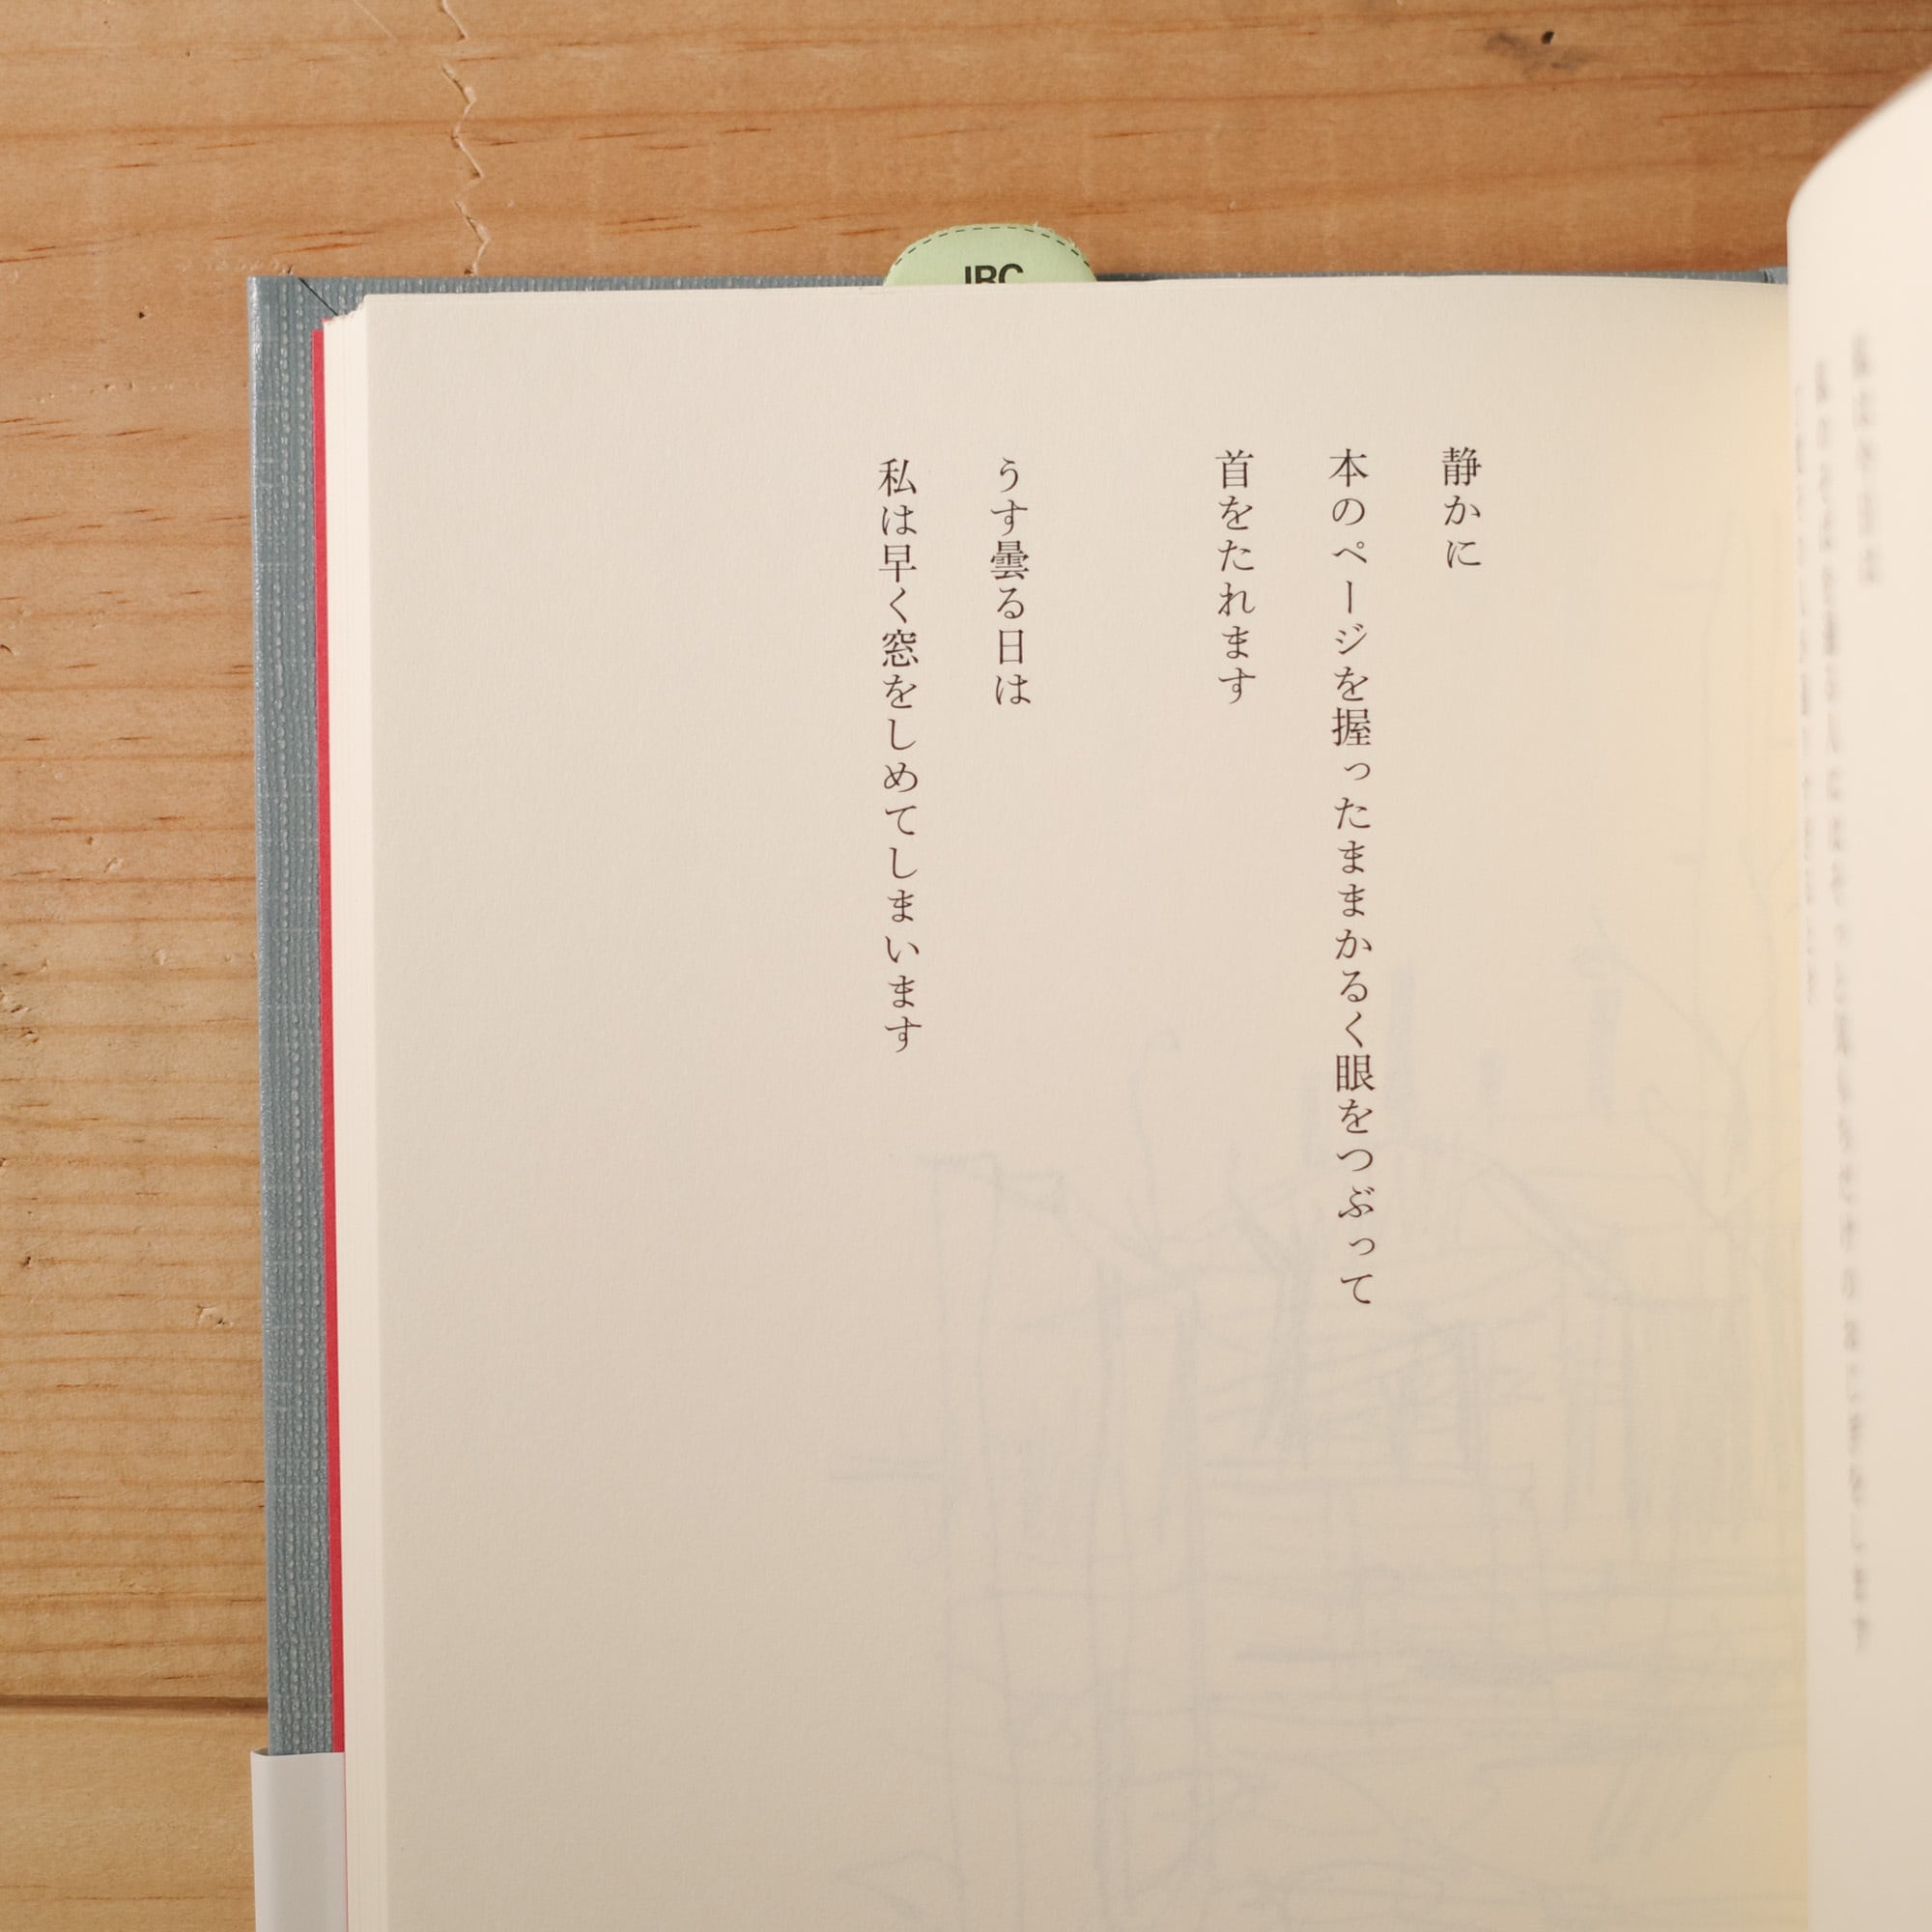 静かに
本のページを握ったままかるく眼をつぶって
首をたれます
うす曇る日は
私は早く窓をしめてしまいます